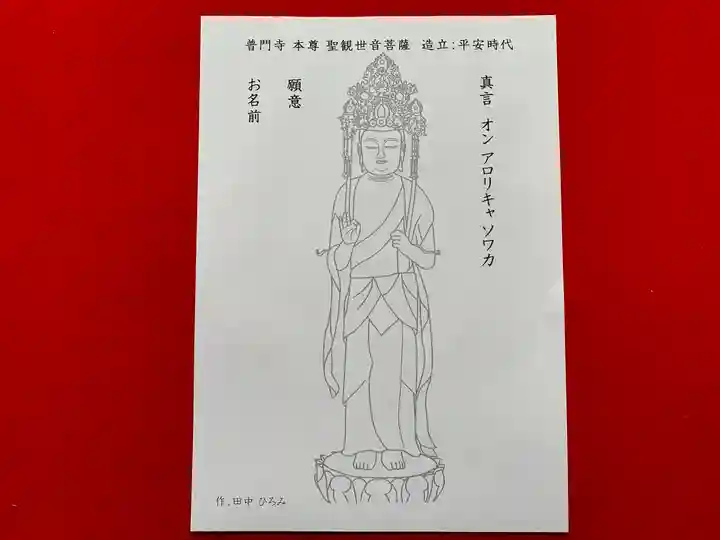 普門寺 本尊 聖観世音菩薩 造立:平安時代
真言 オン アロリキャ ソワカ
願意
お名前
作.田中 ひろみ